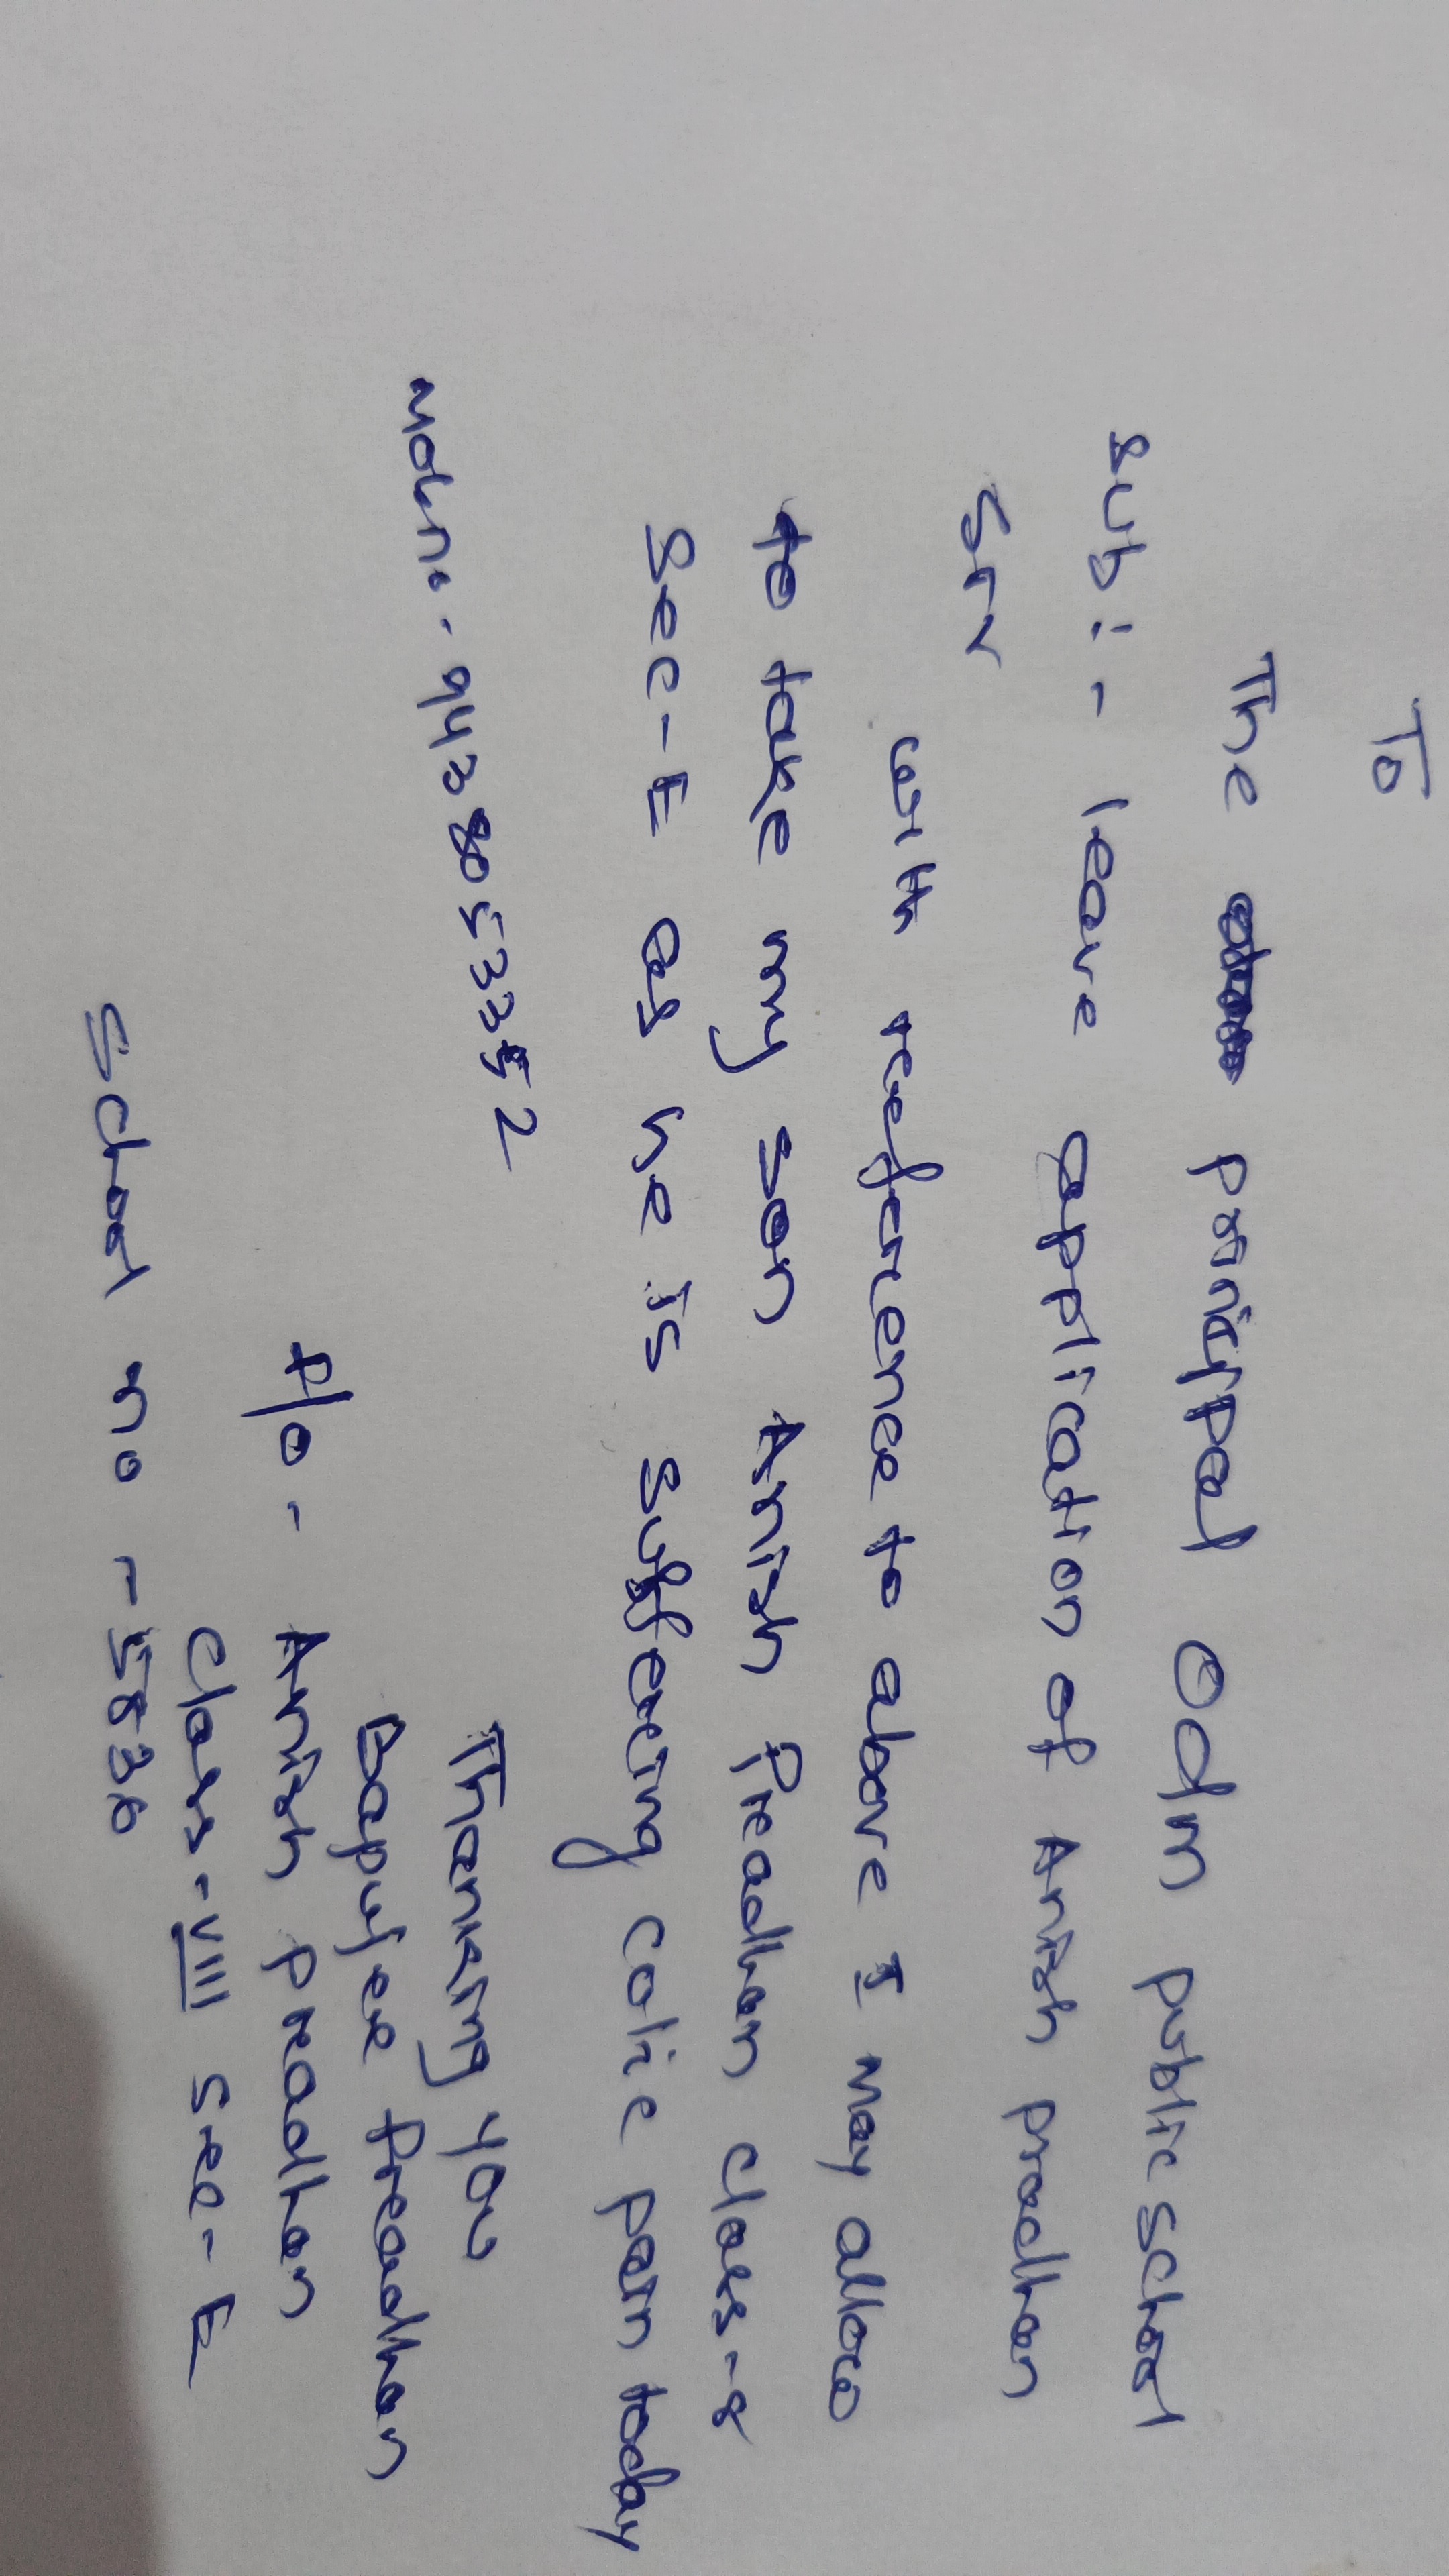 To
The principal Odm public School
Sub:- leave application of Anish pradhan
Sir
with reference to above I may allow
to take my son Anish Pradhan class-8
Sec-E as he is suffering colic pain today
Thanking you
Mobno. 9438053352
Bapujee Pradhan
F/o - Anish pradhan
Class-VIII Sec-E
School no - 5836